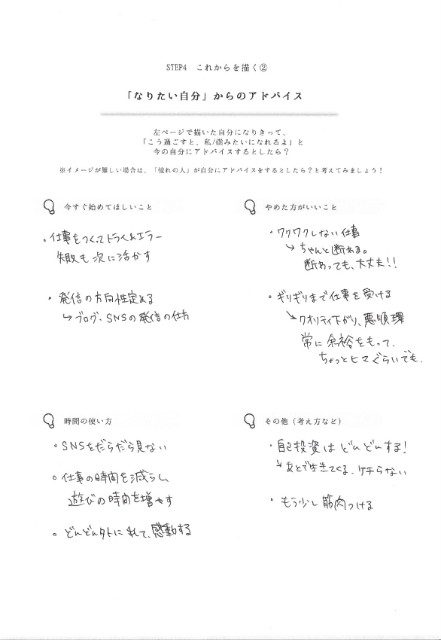 STEP4 これからを描く②
「なりたい自分」からのアドバイス
左ページで描いた自分になりきって、
「こう過ごすと、私/僕みたいになれるよ」と
今の自分にアドバイスするとしたら？
※イメージが難しい場合は、「憧れの人」が自分にアドバイスをするとしたら？と考えてみましょう！
今すぐ始めてほしいこと
・仕事をつくってトライ&エラー
失敗も次に活かす
・発信の方向性定める
↳ブログ、SNSの発信の仕方
やめた方がいいこと
・ワクワクしない仕事
↳ちゃんと断れる。
断わっても、大丈夫!!
・ギリギリまで仕事を受ける
↳クオリティ下がり、悪循環
常に余裕をもって、
ちょっとヒマぐらいでも。
時間の使い方
・SNSをだらだら見ない
○仕事の時間を減らし
遊びの時間を増やす
○どんどん外に出て、感動する
その他（考え方など）
・自己投資はどんどんする!
↳あとで生きてくる、ケチらない
・もう少し筋肉つける